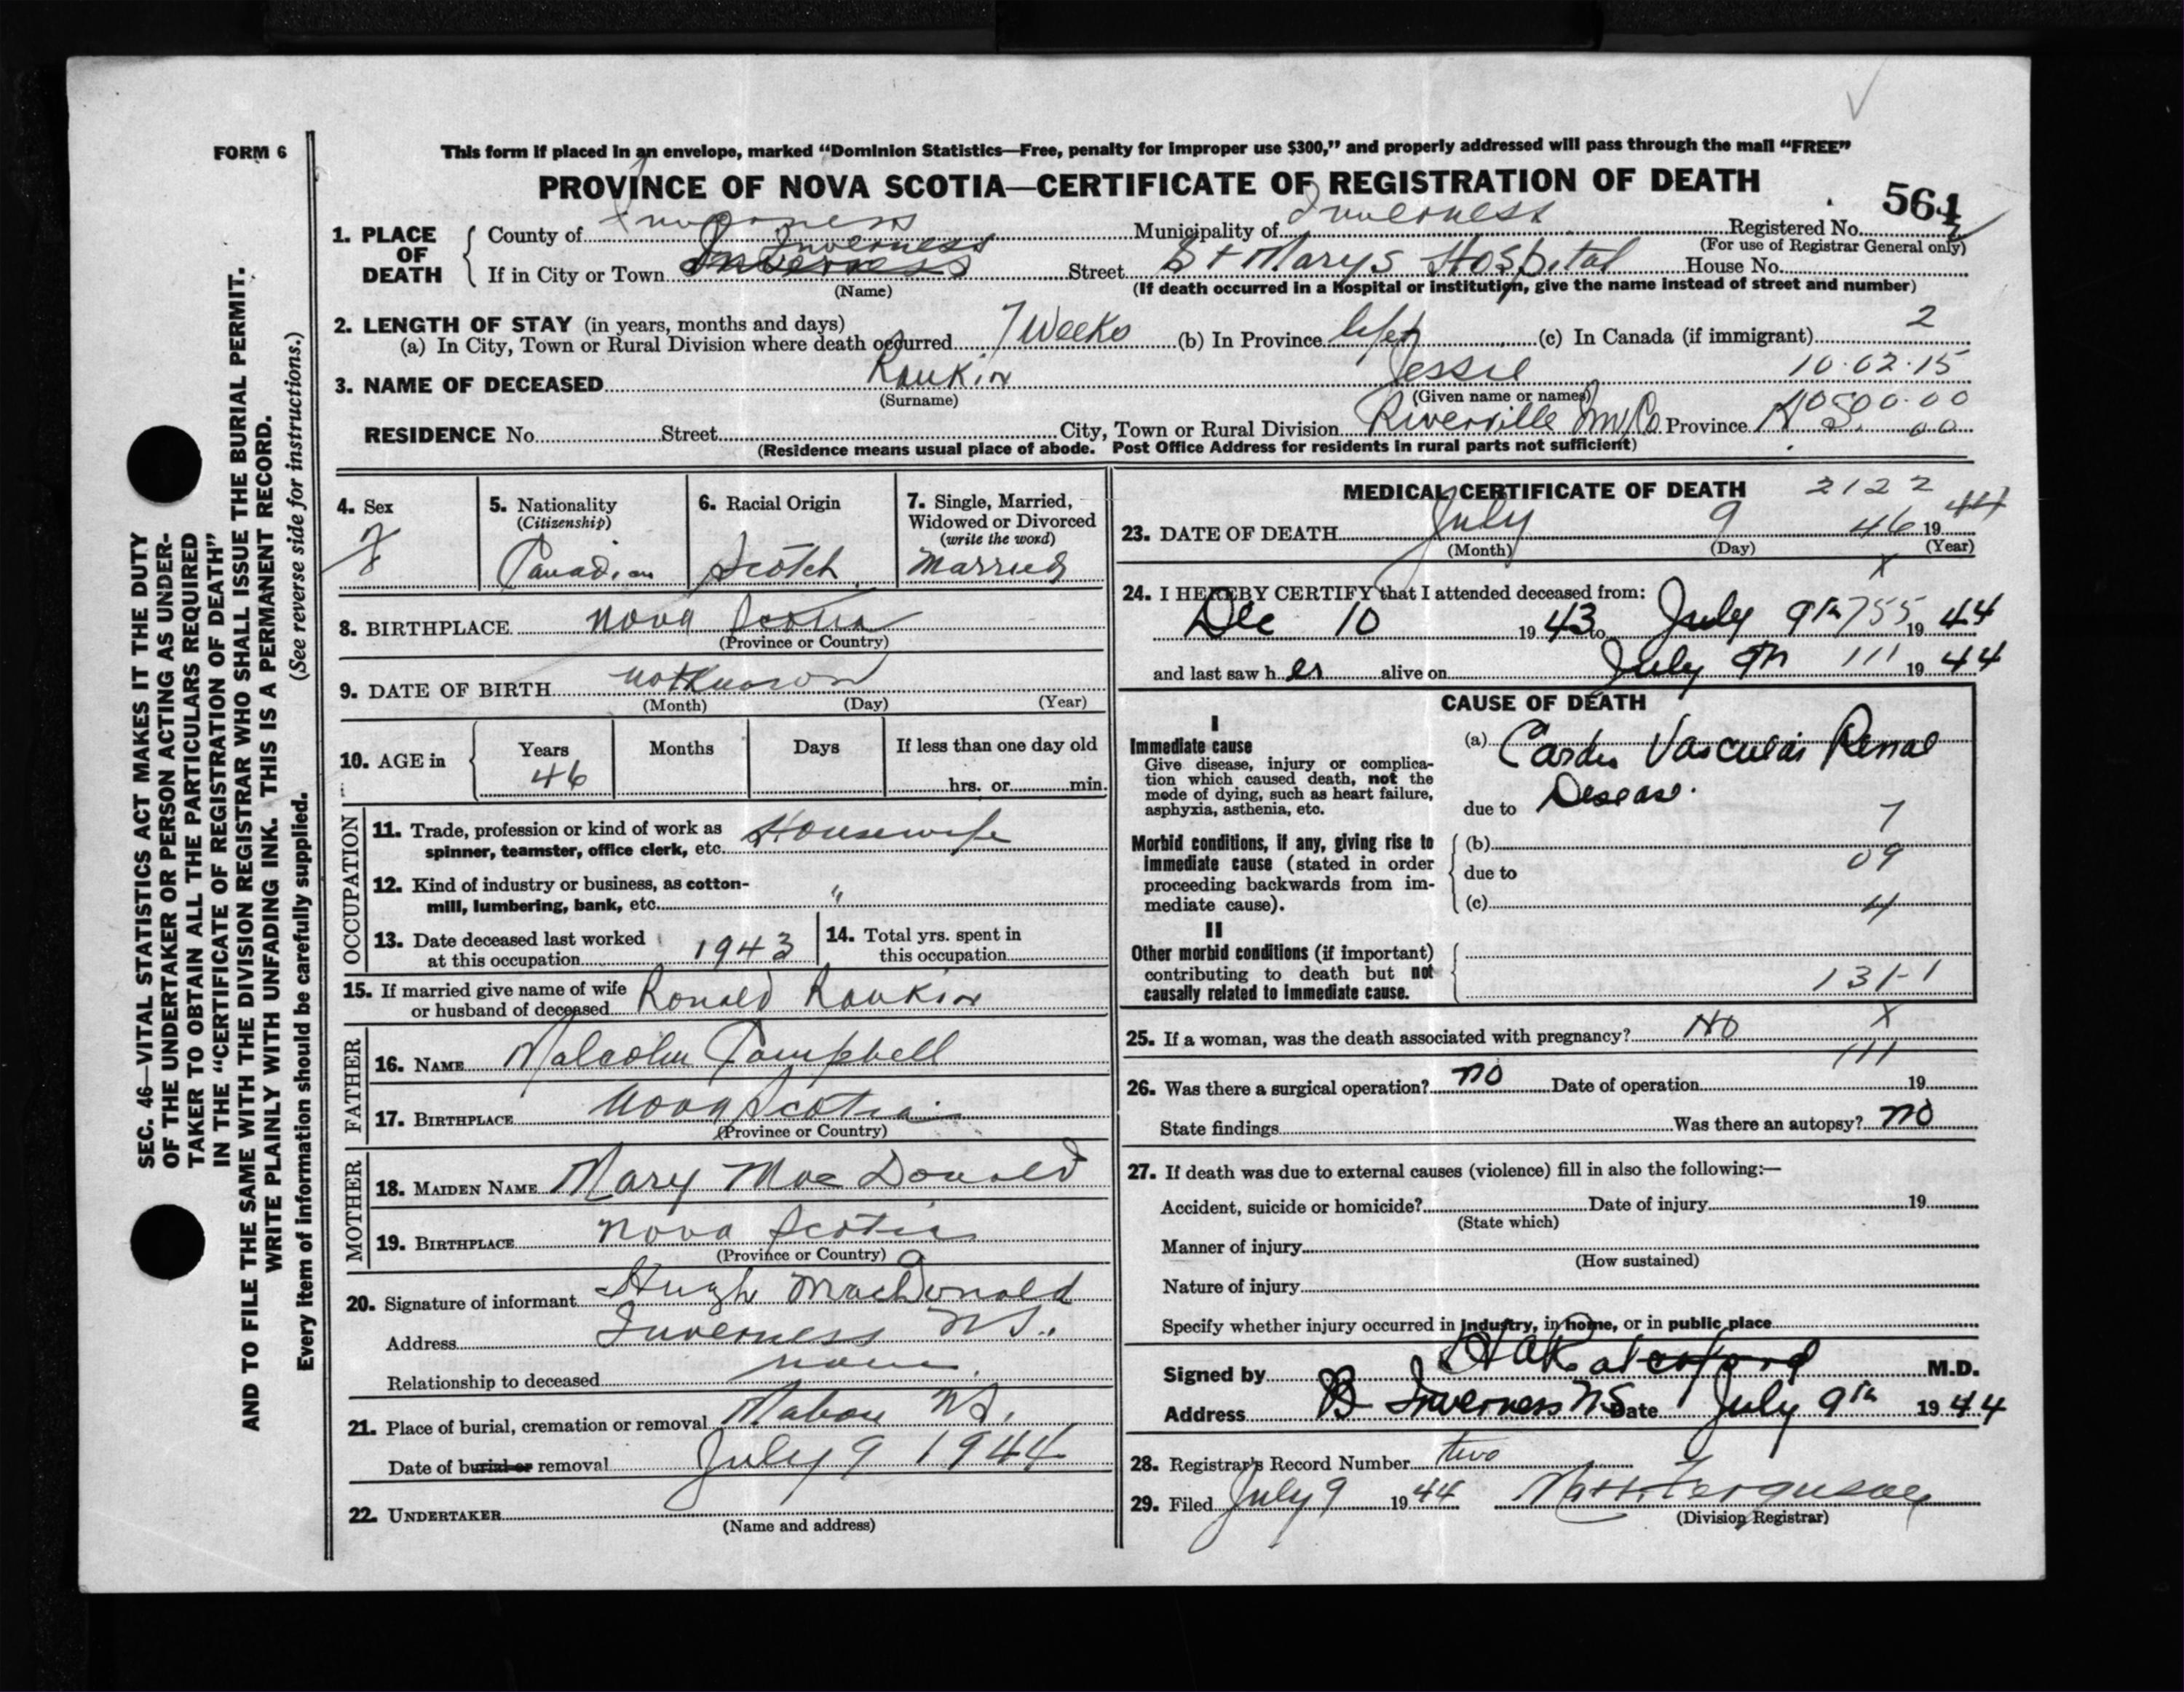 FORM 6
This form if placed in an envelope, marked "Dominion Statistics—Free, penalty for improper use $300," and properly addressed will pass through the mail "FREE"
PROVINCE OF NOVA SCOTIA—CERTIFICATE OF REGISTRATION OF DEATH
564
1. PLACE OF DEATH
County of Inverness Municipality of Inverness Registered No.
(For use of Registrar General only)
If in City or Town Inverness Street St Marys Hospital House No.
(Name) (If death occurred in a Hospital or institution, give the name instead of street and number)
2. LENGTH OF STAY (in years, months and days)
(a) In City, Town or Rural Division where death occurred 7 Weeks (b) In Province life (c) In Canada (if immigrant) 2
3. NAME OF DECEASED Rankin Jessie 10.02.15
(Surname) (Given name or names)
RESIDENCE No. Street City, Town or Rural Division Riverville Inv Co Province N.S. 00
(Residence means usual place of abode. Post Office Address for residents in rural parts not sufficient)
4. Sex
F
5. Nationality
(Citizenship)
Canadian
6. Racial Origin
Scotch
7. Single, Married,
Widowed or Divorced
(write the word)
Married
8. BIRTHPLACE Nova Scotia
(Province or Country)
9. DATE OF BIRTH not known
(Month) (Day) (Year)
10. AGE in
Years Months Days If less than one day old
46 hrs. or min.
OCCUPATION
11. Trade, profession or kind of work as
spinner, teamster, office clerk, etc. Housewife
12. Kind of industry or business, as cotton-
mill, lumbering, bank, etc. "
13. Date deceased last worked
at this occupation 1943
14. Total yrs. spent in
this occupation
15. If married give name of wife
or husband of deceased Ronald Rankin
FATHER
16. NAME Malcolm Campbell
17. BIRTHPLACE Nova Scotia
(Province or Country)
MOTHER
18. MAIDEN NAME Mary MacDonald
19. BIRTHPLACE Nova Scotia
(Province or Country)
20. Signature of informant Hugh MacDonald
Address Inverness N.S.
Relationship to deceased none
21. Place of burial, cremation or removal Mabou N.S.
Date of burial or removal July 9 1944
22. UNDERTAKER
(Name and address)
MEDICAL CERTIFICATE OF DEATH 2122
23. DATE OF DEATH July 9 46 19 44
(Month) (Day) (Year)
X
24. I HEREBY CERTIFY that I attended deceased from:
Dec 10 19 43 to July 9th 755 19 44
and last saw h er alive on July 9th 111 19 44
CAUSE OF DEATH
I
Immediate cause
Give disease, injury or complica-
tion which caused death, not the
mode of dying, such as heart failure,
asphyxia, asthenia, etc.
(a) Cardio Vascular Renal
due to Disease.
7
Morbid conditions, if any, giving rise to
immediate cause (stated in order
proceeding backwards from im-
mediate cause).
(b)
09
due to
(c)
4
II
Other morbid conditions (if important)
contributing to death but not
causally related to immediate cause.
131-1
25. If a woman, was the death associated with pregnancy? No X
111
26. Was there a surgical operation? no Date of operation 19
State findings Was there an autopsy? no
27. If death was due to external causes (violence) fill in also the following:—
Accident, suicide or homicide? Date of injury 19
(State which)
Manner of injury
(How sustained)
Nature of injury
Specify whether injury occurred in industry, in home, or in public place
Signed by M.D.
Address Inverness NS Date July 9th 19 44
28. Registrar's Record Number two
29. Filed July 9 19 44 Ferguson
(Division Registrar)
SEC. 46—VITAL STATISTICS ACT MAKES IT THE DUTY
OF THE UNDERTAKER OR PERSON ACTING AS UNDER-
TAKER TO OBTAIN ALL THE PARTICULARS REQUIRED
IN THE "CERTIFICATE OF REGISTRATION OF DEATH"
AND TO FILE THE SAME WITH THE DIVISION REGISTRAR WHO SHALL ISSUE THE BURIAL PERMIT.
WRITE PLAINLY WITH UNFADING INK. THIS IS A PERMANENT RECORD.
Every item of information should be carefully supplied. (See reverse side for instructions.)